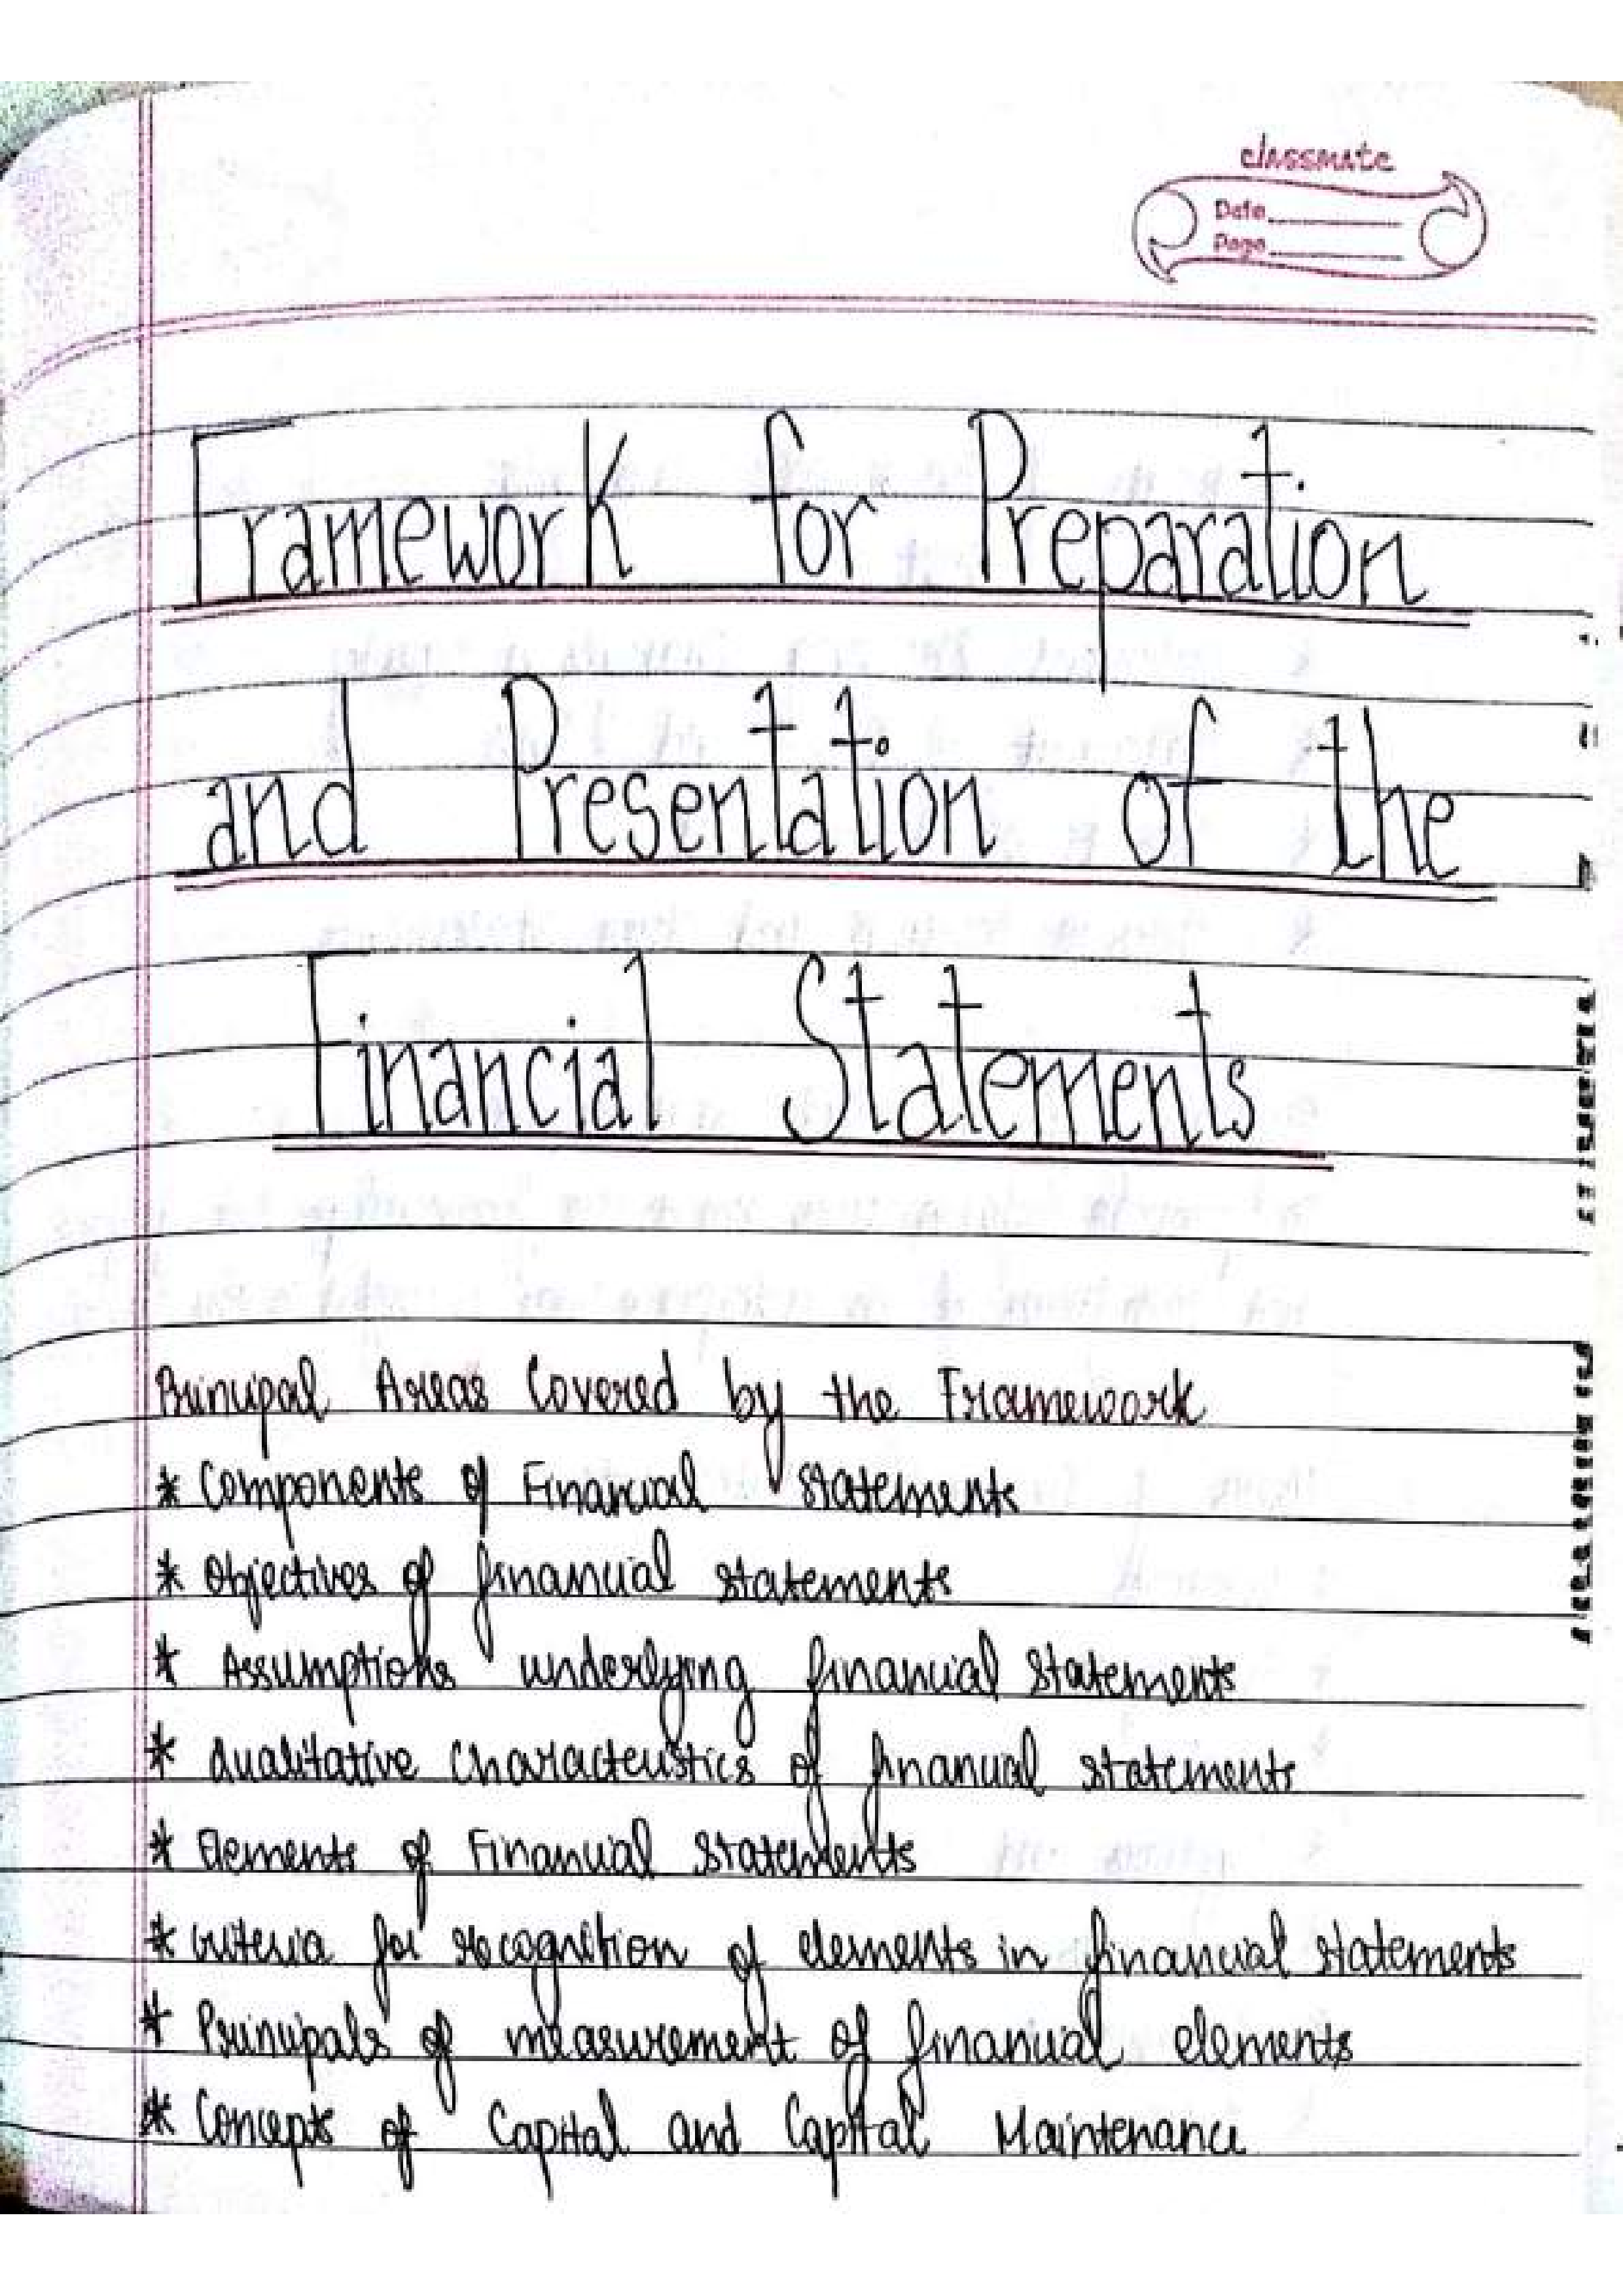 classmate
Date
Page
Framework for Preparation
and Presentation of the
Financial Statements
Principal Areas Covered by the Framework
* Components of Financial Statements
* Objectives of financial statements
* Assumptions underlying financial statements
* Qualitative Characteristics of financial statements
* Elements of Financial Statements
* Criteria for recognition of elements in financial statements
* Principals of measurement of financial elements
* Concepts of Capital and Capital Maintenance